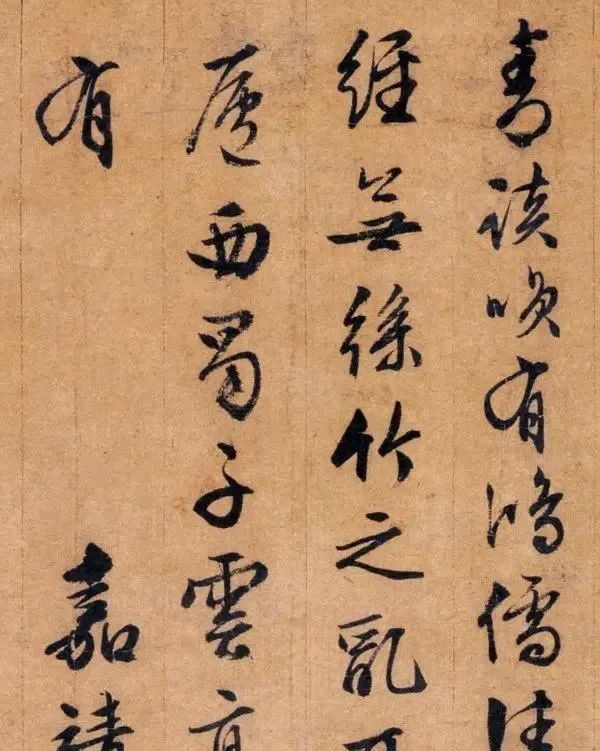 青談咲有鴻儒往
經無絲竹之亂
廬西蜀子雲亭
有 嘉靖